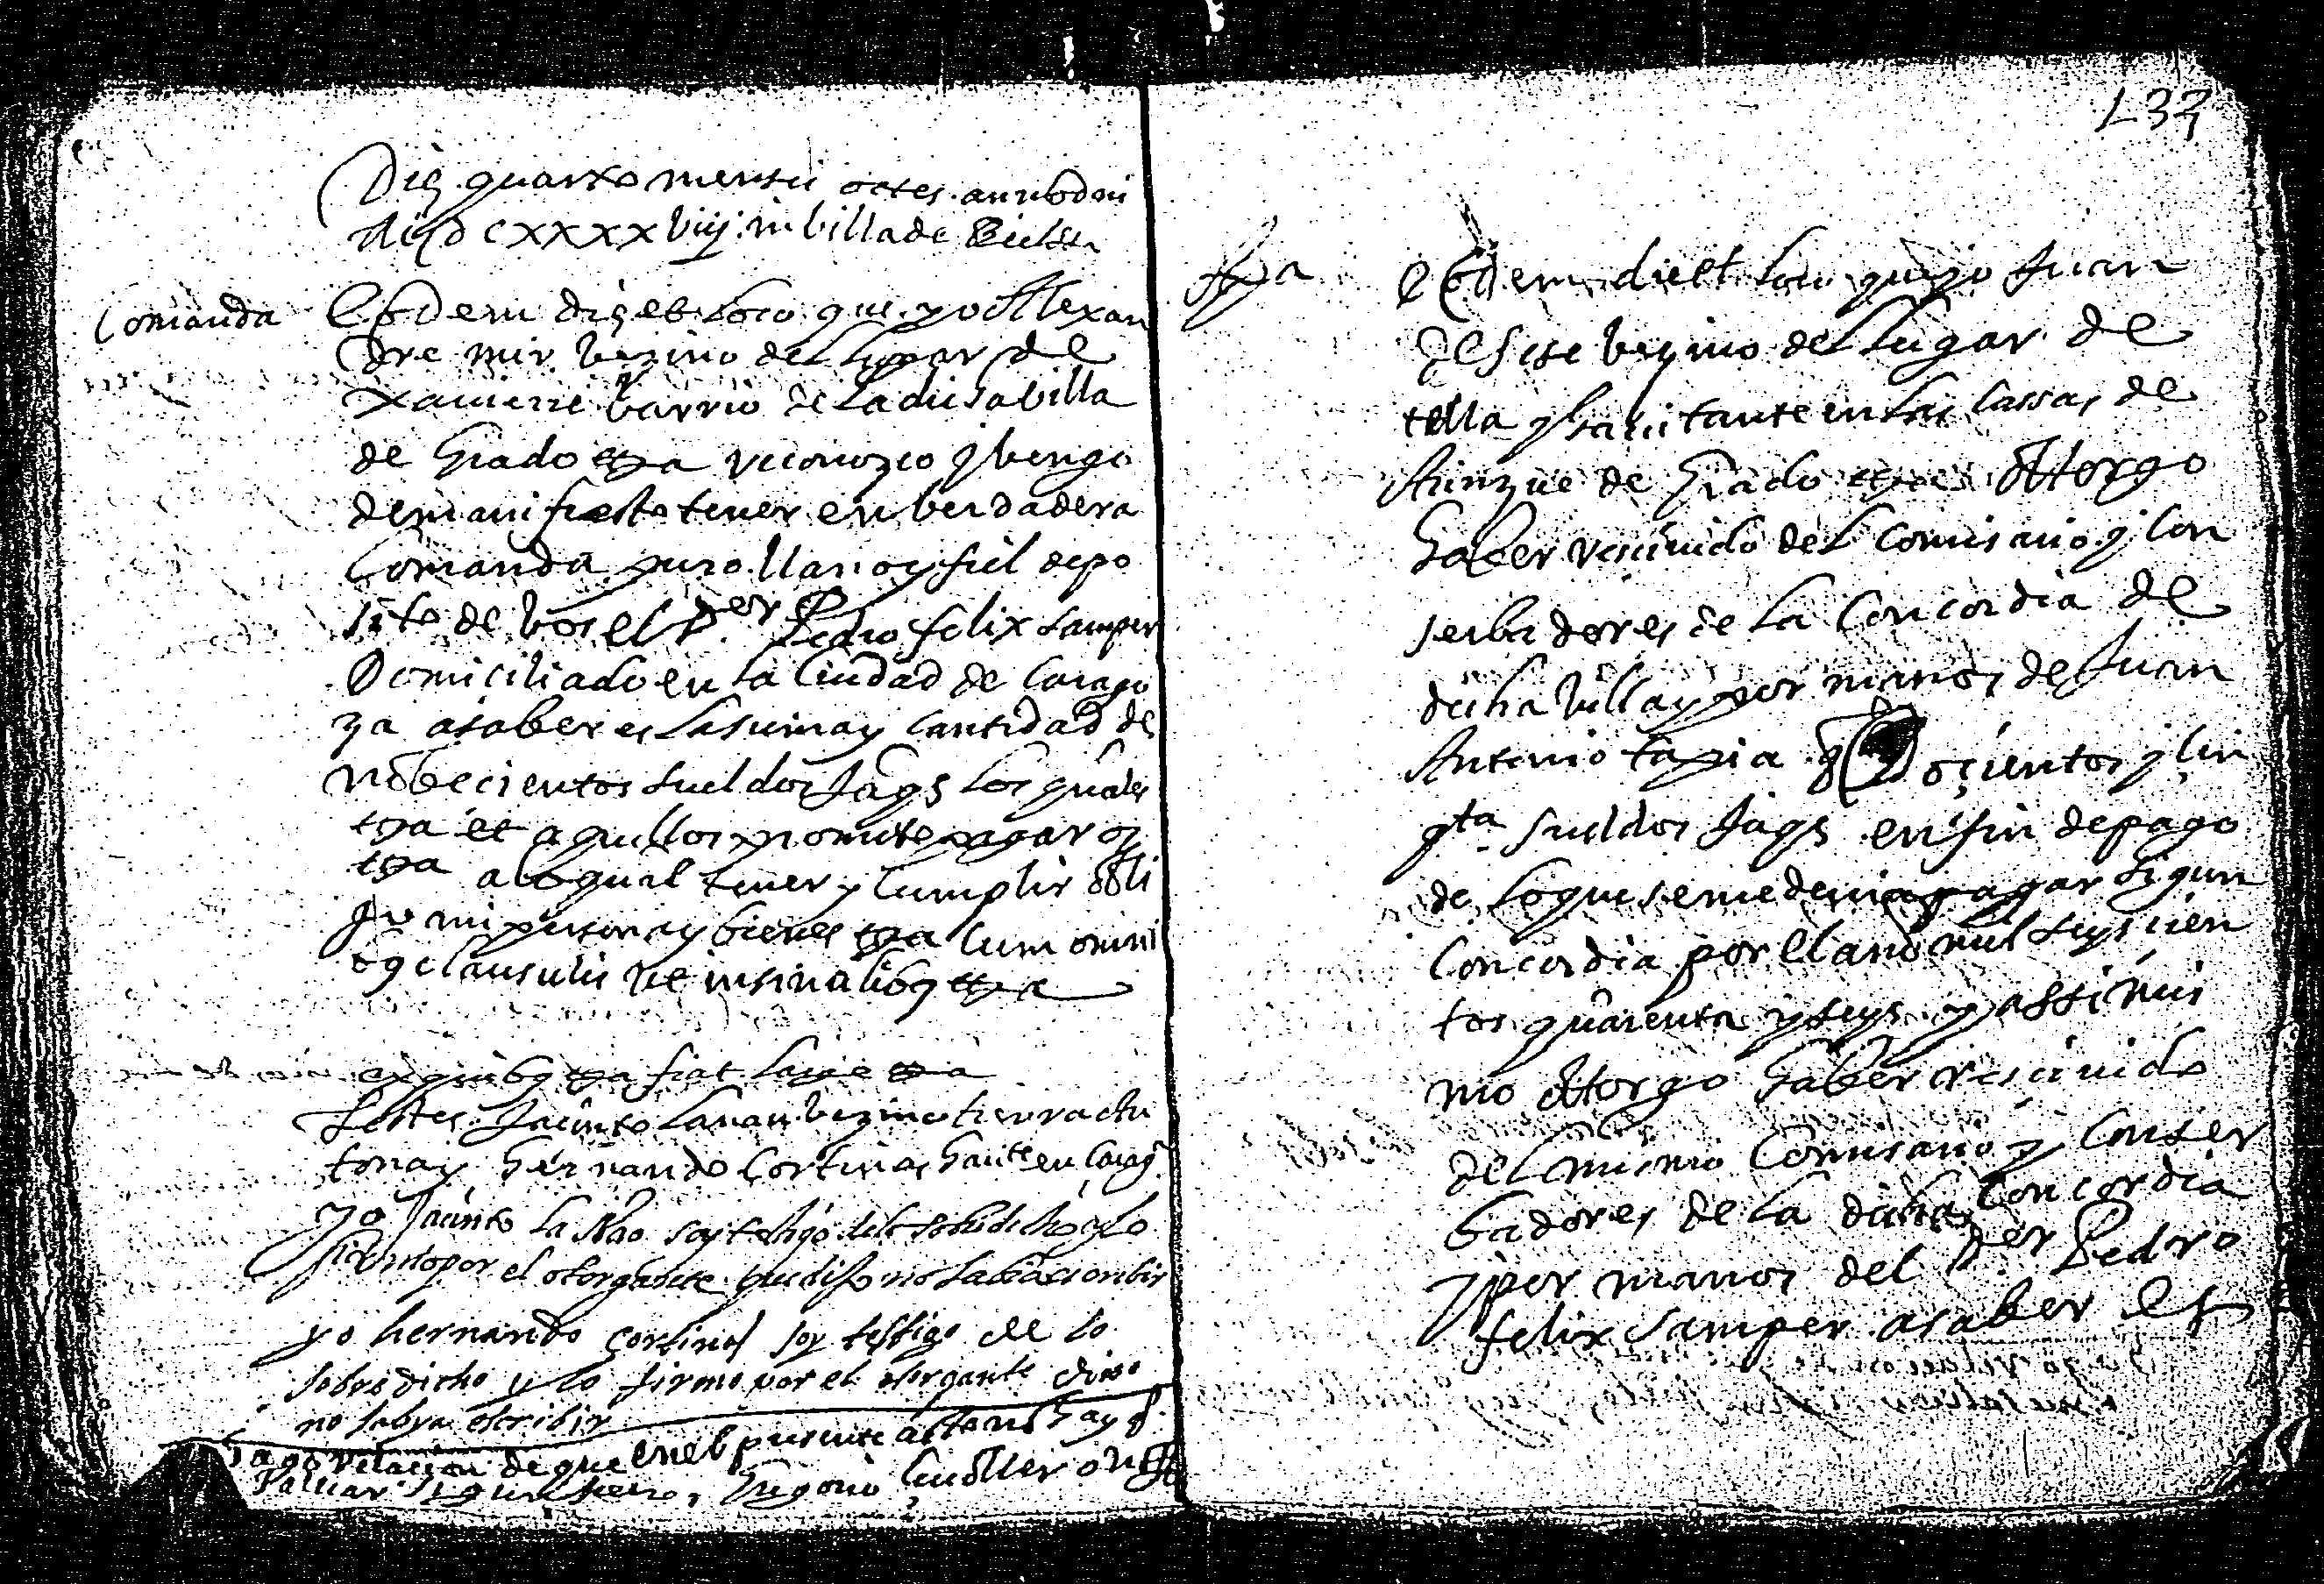 Die quarto mensis octes anno dni
MDCXXXXviij in villa de Bielssa
Comanda
Eodem die et loco que yo Alexan
dre mir bezino del lugar de
xauierre barrio de la dicha billa
de Grado etca reconozco y bengo
de manifiesto tener en berdadera
Comanda puro llano y fiel depo
sito de bos el Dor Pedro felix samper
Domiciliado en la Ciudad de Carago
za a saber es la suma y cantidad de
nobecientos sueldos Jaqs los quales
etca et aquellos promete pagar os
etca a lo qual tener y cumplir obli
go mi persona y bienes etca cum omni
bus clausulis etca
ex quibus etca fiat large etca
Testes Jacinto bezino
y Hernando Cortinas hante en Carag
Yo Jacinto la Nao soy testigo de lo sobredicho y lo
firmo por el otorgante que dijo no sabia escribir
yo hernando cortinas soy testigo de lo
sobre dicho y lo firmo por el otorgante dixo
no sabya escribir
ago relacion de que en el presente acto no hay q
saluar segun fuero, Gregorio not
137
Apa
Eodem die et loco que yo Juan
bezino del lugar de
tella y hauitante en las cassas de
de Grado etca Atorgo
haber resciuido del Comisario y Con
serbadores de la Concordia de
dicha billa y por manos de Juan
Antonio tapia Docientos y cin
qta sueldos Jaqs en fin de pago
de lo que se me deuia pagar sigun
Concordia por el año mil seys cien
tos quarenta y seys y assi mis
mo Atorgo haber resciuido
del mismo Comisario y Conser
badores de la dicha Concordia
y por manos del Dor Pedro
felix samper a saber es